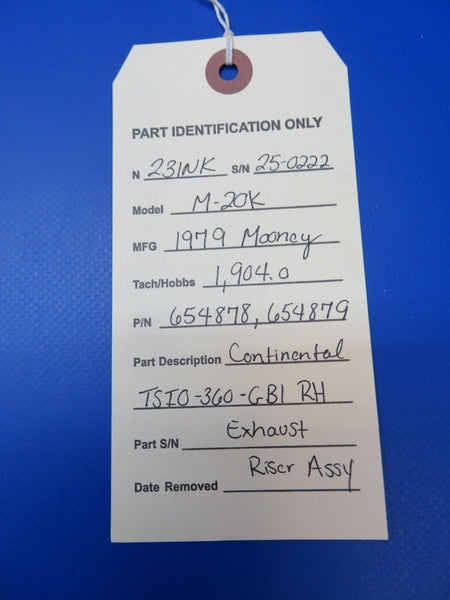 PART IDENTIFICATION ONLY
N 231NK S/N 25-0222
Model M-20K
MFG 1979 Mooney
Tach/Hobbs 1,904.0
P/N 654878, 654879
Part Description Continental
TSIO-360-GB1 RH
Part S/N Exhaust
Date Removed Riser Assy